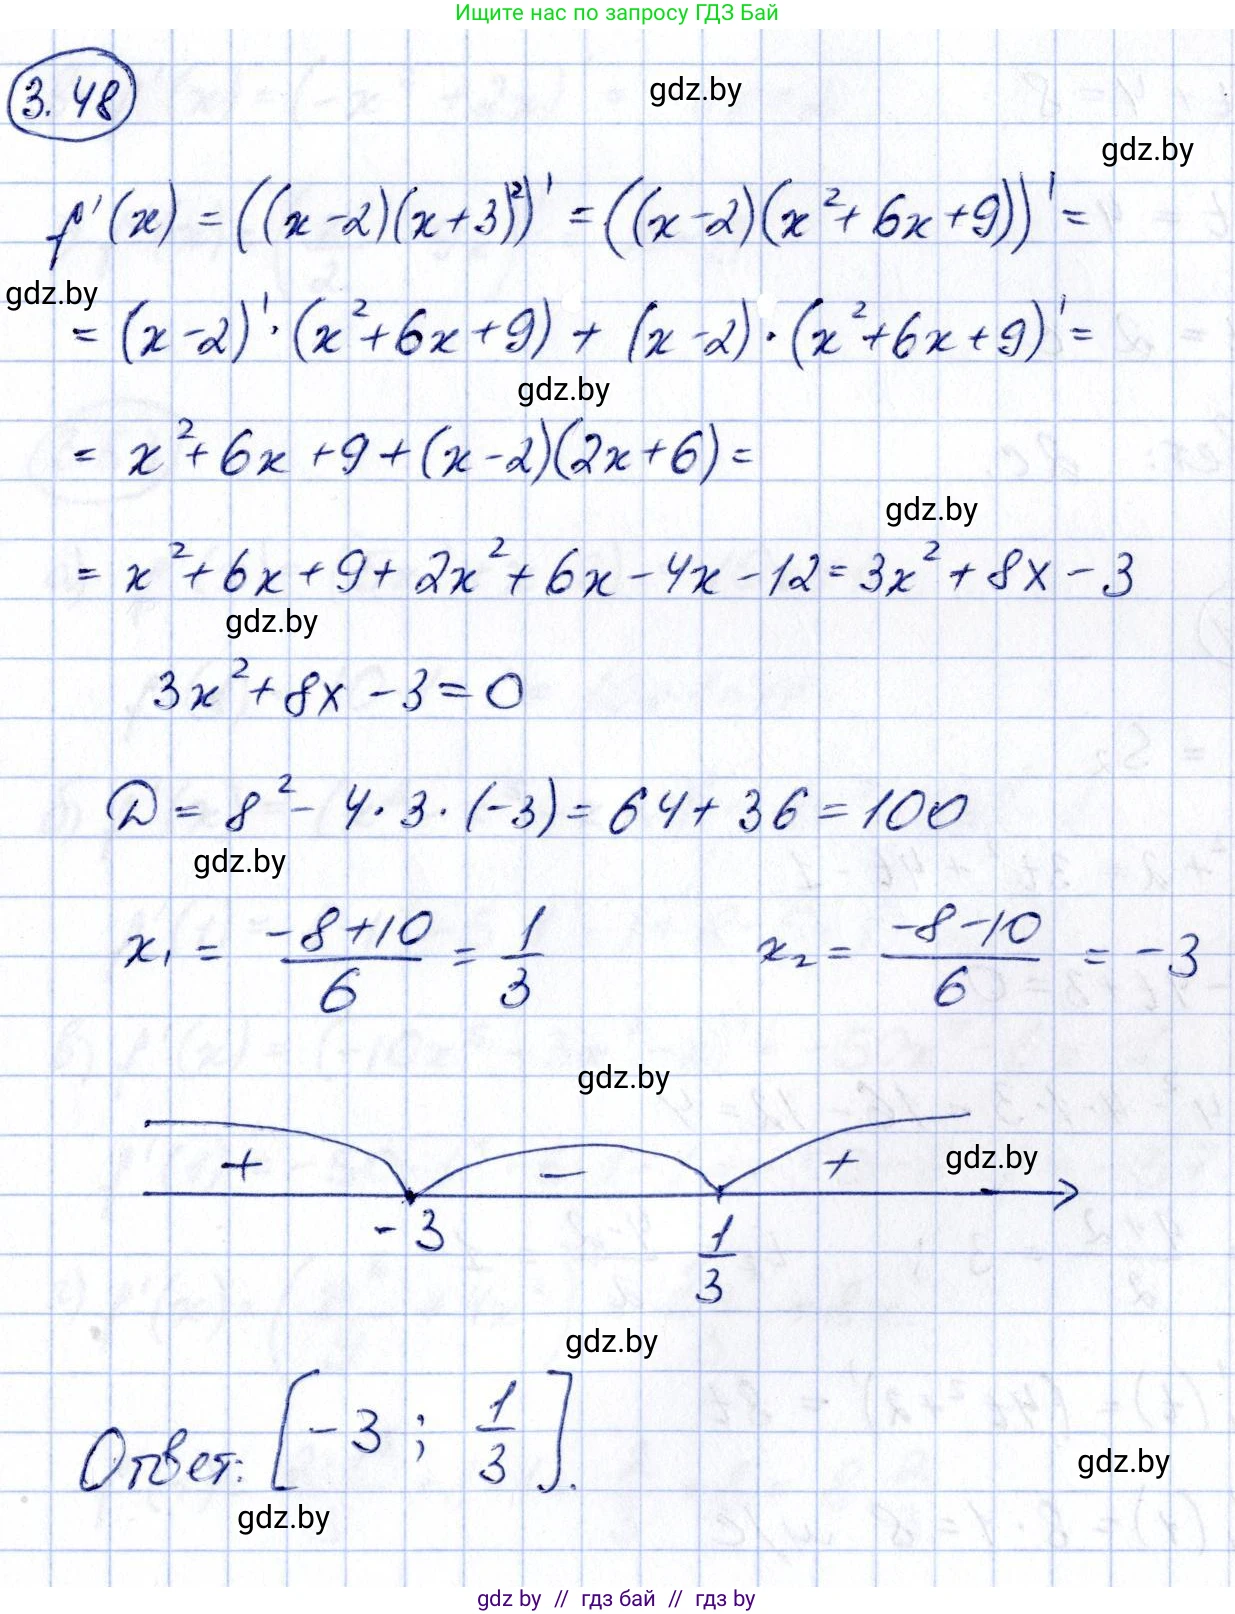 Ищите нас по запросу ГДЗ Бай
3.48
gdz.by
gdz.by
f'(x) = ((x-2)(x+3)²)' = ((x-2)(x²+6x+9))' =
gdz.by
= (x-2)'·(x²+6x+9) + (x-2)·(x²+6x+9)' =
gdz.by
= x²+6x+9+(x-2)(2x+6) =
gdz.by
= x²+6x+9+2x²+6x-4x-12 = 3x²+8x-3
gdz.by
3x²+8x-3=0
D = 8²-4·3·(-3) = 64+36 = 100
gdz.by
x₁ = (-8+10)/6 = 1/3 x₂ = (-8-10)/6 = -3
gdz.by
+ − + gdz.by
-3 1/3
gdz.by
Ответ: [-3; 1/3].
gdz.by
gdz.by
gdz by // гдз бай // гдз by